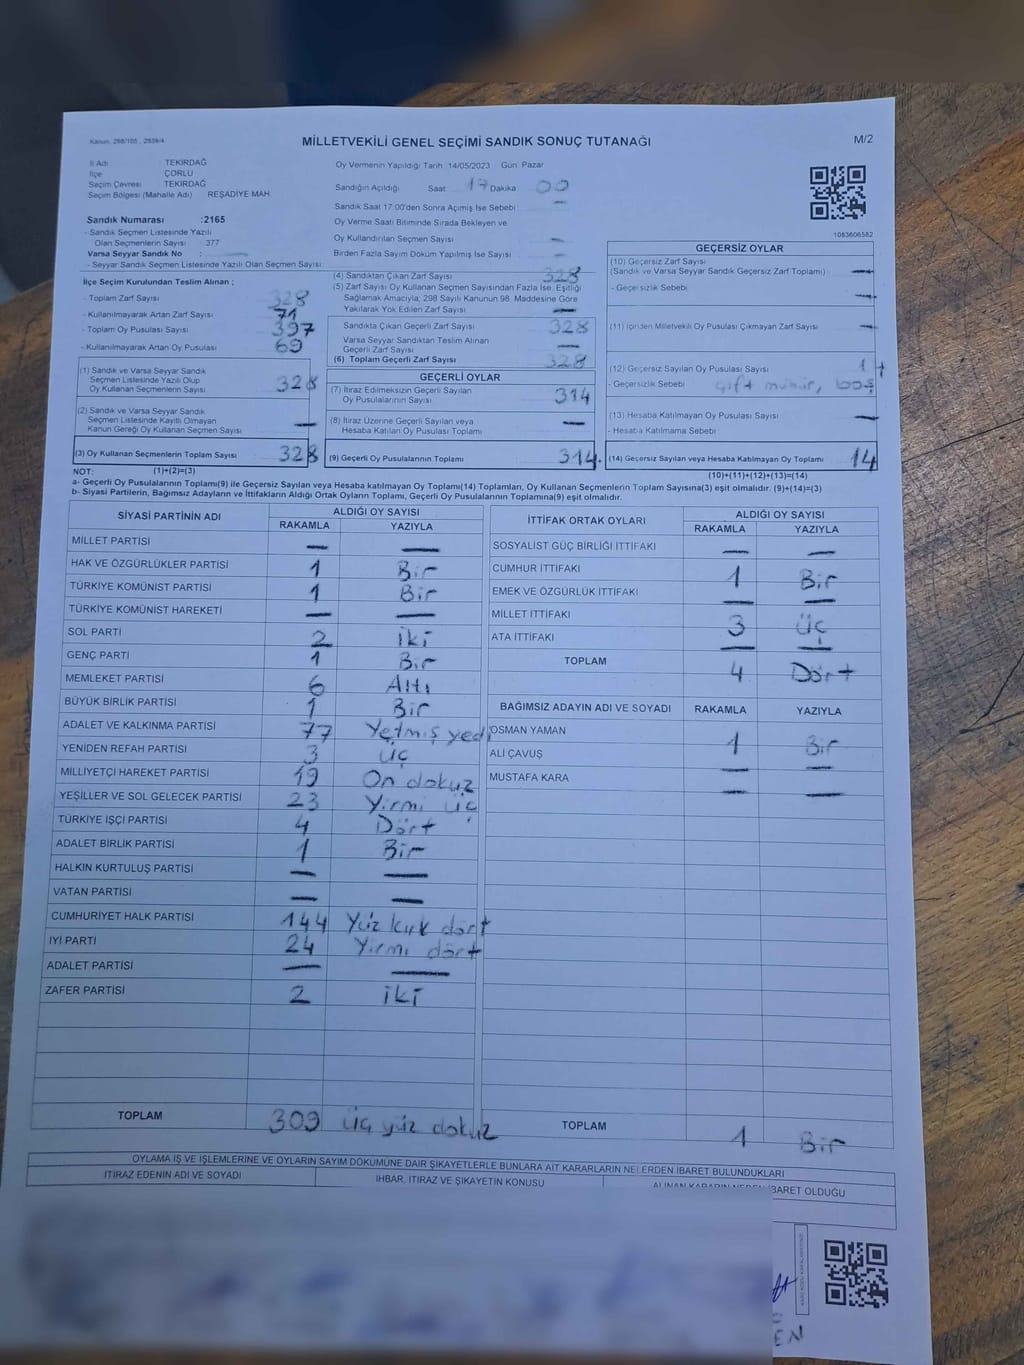 Kanun: 298/105 , 2839/4
MİLLETVEKİLİ GENEL SEÇİMİ SANDIK SONUÇ TUTANAĞI
M/2
İl Adı : TEKİRDAĞ
İlçe : ÇORLU
Seçim Çevresi : TEKİRDAĞ
Seçim Bölgesi (Mahalle Adı) : REŞADİYE MAH
Sandık Numarası :2165
- Sandık Seçmen Listesinde Yazılı
Olan Seçmenlerin Sayısı : 377
Varsa Seyyar Sandık No :
- Seyyar Sandık Seçmen Listesinde Yazılı Olan Seçmen Sayısı:
İlçe Seçim Kurulundan Teslim Alınan ;
- Toplam Zarf Sayısı : 328
- Kullanılmayarak Artan Zarf Sayısı : 71
- Toplam Oy Pusulası Sayısı : 397
- Kullanılmayarak Artan Oy Pusulası : 69
(1) Sandık ve Varsa Seyyar Sandık
Seçmen Listesinde Yazılı Olup
Oy Kullanan Seçmenlerin Sayısı 328
(2) Sandık ve Varsa Seyyar Sandık
Seçmen Listesinde Kayıtlı Olmayan
Kanun Gereği Oy Kullanan Seçmen Sayısı —
(3) Oy Kullanan Seçmenlerin Toplam Sayısı 328
Oy Vermenin Yapıldığı Tarih :14/05/2023 Gün: Pazar
Sandığın Açıldığı Saat: 17 Dakika : 00
Sandık Saat 17:00'den Sonra Açılmış İse Sebebi : —
Oy Verme Saati Bitiminde Sırada Bekleyen ve
Oy Kullandırılan Seçmen Sayısı : —
Birden Fazla Sayım Döküm Yapılmış İse Sayısı : —
(4) Sandıktan Çıkan Zarf Sayısı 328
(5) Zarf Sayısı Oy Kullanan Seçmen Sayısından Fazla İse, Eşitliği
Sağlamak Amacıyla; 298 Sayılı Kanunun 98. Maddesine Göre
Yakılarak Yok Edilen Zarf Sayısı —
Sandıkta Çıkan Geçerli Zarf Sayısı 328
Varsa Seyyar Sandıktan Teslim Alınan
Geçerli Zarf Sayısı —
(6) Toplam Geçerli Zarf Sayısı 328
GEÇERLİ OYLAR
(7) İtiraz Edilmeksizin Geçerli Sayılan
Oy Pusulalarının Sayısı 314
(8) İtiraz Üzerine Geçerli Sayılan veya
Hesaba Katılan Oy Pusulası Toplamı —
(9) Geçerli Oy Pusulalarının Toplamı 314
1083606582
GEÇERSİZ OYLAR
(10) Geçersiz Zarf Sayısı
(Sandık ve Varsa Seyyar Sandık Geçersiz Zarf Toplamı) —
- Geçersizlik Sebebi : —
(11) İçinden Milletvekili Oy Pusulası Çıkmayan Zarf Sayısı : —
(12) Geçersiz Sayılan Oy Pusulası Sayısı : 14
- Geçersizlik Sebebi : çift mühür, boş
(13) Hesaba Katılmayan Oy Pusulası Sayısı : —
- Hesaba Katılmama Sebebi :
(14) Geçersiz Sayılan veya Hesaba Katılmayan Oy Toplamı 14
NOT: (1)+(2)=(3) (10)+(11)+(12)+(13)=(14)
a- Geçerli Oy Pusulalarının Toplamı(9) ile Geçersiz Sayılan veya Hesaba katılmayan Oy Toplamı(14) Toplamları, Oy Kullanan Seçmenlerin Toplam Sayısına(3) eşit olmalıdır. (9)+(14)=(3)
b- Siyasi Partilerin, Bağımsız Adayların ve İttifakların Aldığı Ortak Oyların Toplamı, Geçerli Oy Pusulalarının Toplamına(9) eşit olmalıdır.
SİYASİ PARTİNİN ADI ALDIĞI OY SAYISI
RAKAMLA YAZIYLA
MİLLET PARTİSİ — —
HAK VE ÖZGÜRLÜKLER PARTİSİ 1 Bir
TÜRKİYE KOMÜNİST PARTİSİ 1 Bir
TÜRKİYE KOMÜNİST HAREKETİ — —
SOL PARTİ 2 iki
GENÇ PARTİ 1 Bir
MEMLEKET PARTİSİ 6 Altı
BÜYÜK BİRLİK PARTİSİ 1 Bir
ADALET VE KALKINMA PARTİSİ 77 Yetmiş yedi
YENİDEN REFAH PARTİSİ 3 üç
MİLLİYETÇİ HAREKET PARTİSİ 19 On dokuz
YEŞİLLER VE SOL GELECEK PARTİSİ 23 Yirmi üç
TÜRKİYE İŞÇİ PARTİSİ 4 Dört
ADALET BİRLİK PARTİSİ 1 Bir
HALKIN KURTULUŞ PARTİSİ — —
VATAN PARTİSİ — —
CUMHURİYET HALK PARTİSİ 144 Yüz kırk dört
İYİ PARTİ 24 Yirmi dört
ADALET PARTİSİ — —
ZAFER PARTİSİ 2 iki
TOPLAM 309 üç yüz dokuz
İTTİFAK ORTAK OYLARI ALDIĞI OY SAYISI
RAKAMLA YAZIYLA
SOSYALİST GÜÇ BİRLİĞİ İTTİFAKI — —
CUMHUR İTTİFAKI 1 Bir
EMEK VE ÖZGÜRLÜK İTTİFAKI — —
MİLLET İTTİFAKI 3 üç
ATA İTTİFAKI — —
TOPLAM 4 Dört
BAĞIMSIZ ADAYIN ADI VE SOYADI RAKAMLA YAZIYLA
OSMAN YAMAN 1 Bir
ALİ ÇAVUŞ — —
MUSTAFA KARA — —
TOPLAM 1 Bir
OYLAMA İŞ VE İŞLEMLERİNE VE OYLARIN SAYIM DÖKÜMÜNE DAİR ŞİKAYETLERLE BUNLARA AİT KARARLARIN NELERDEN İBARET BULUNDUKLARI
İTİRAZ EDENİN ADI VE SOYADI İHBAR, İTİRAZ VE ŞİKAYETİN KONUSU ALINAN KARARIN NEDEN İBARET OLDUĞU
EN